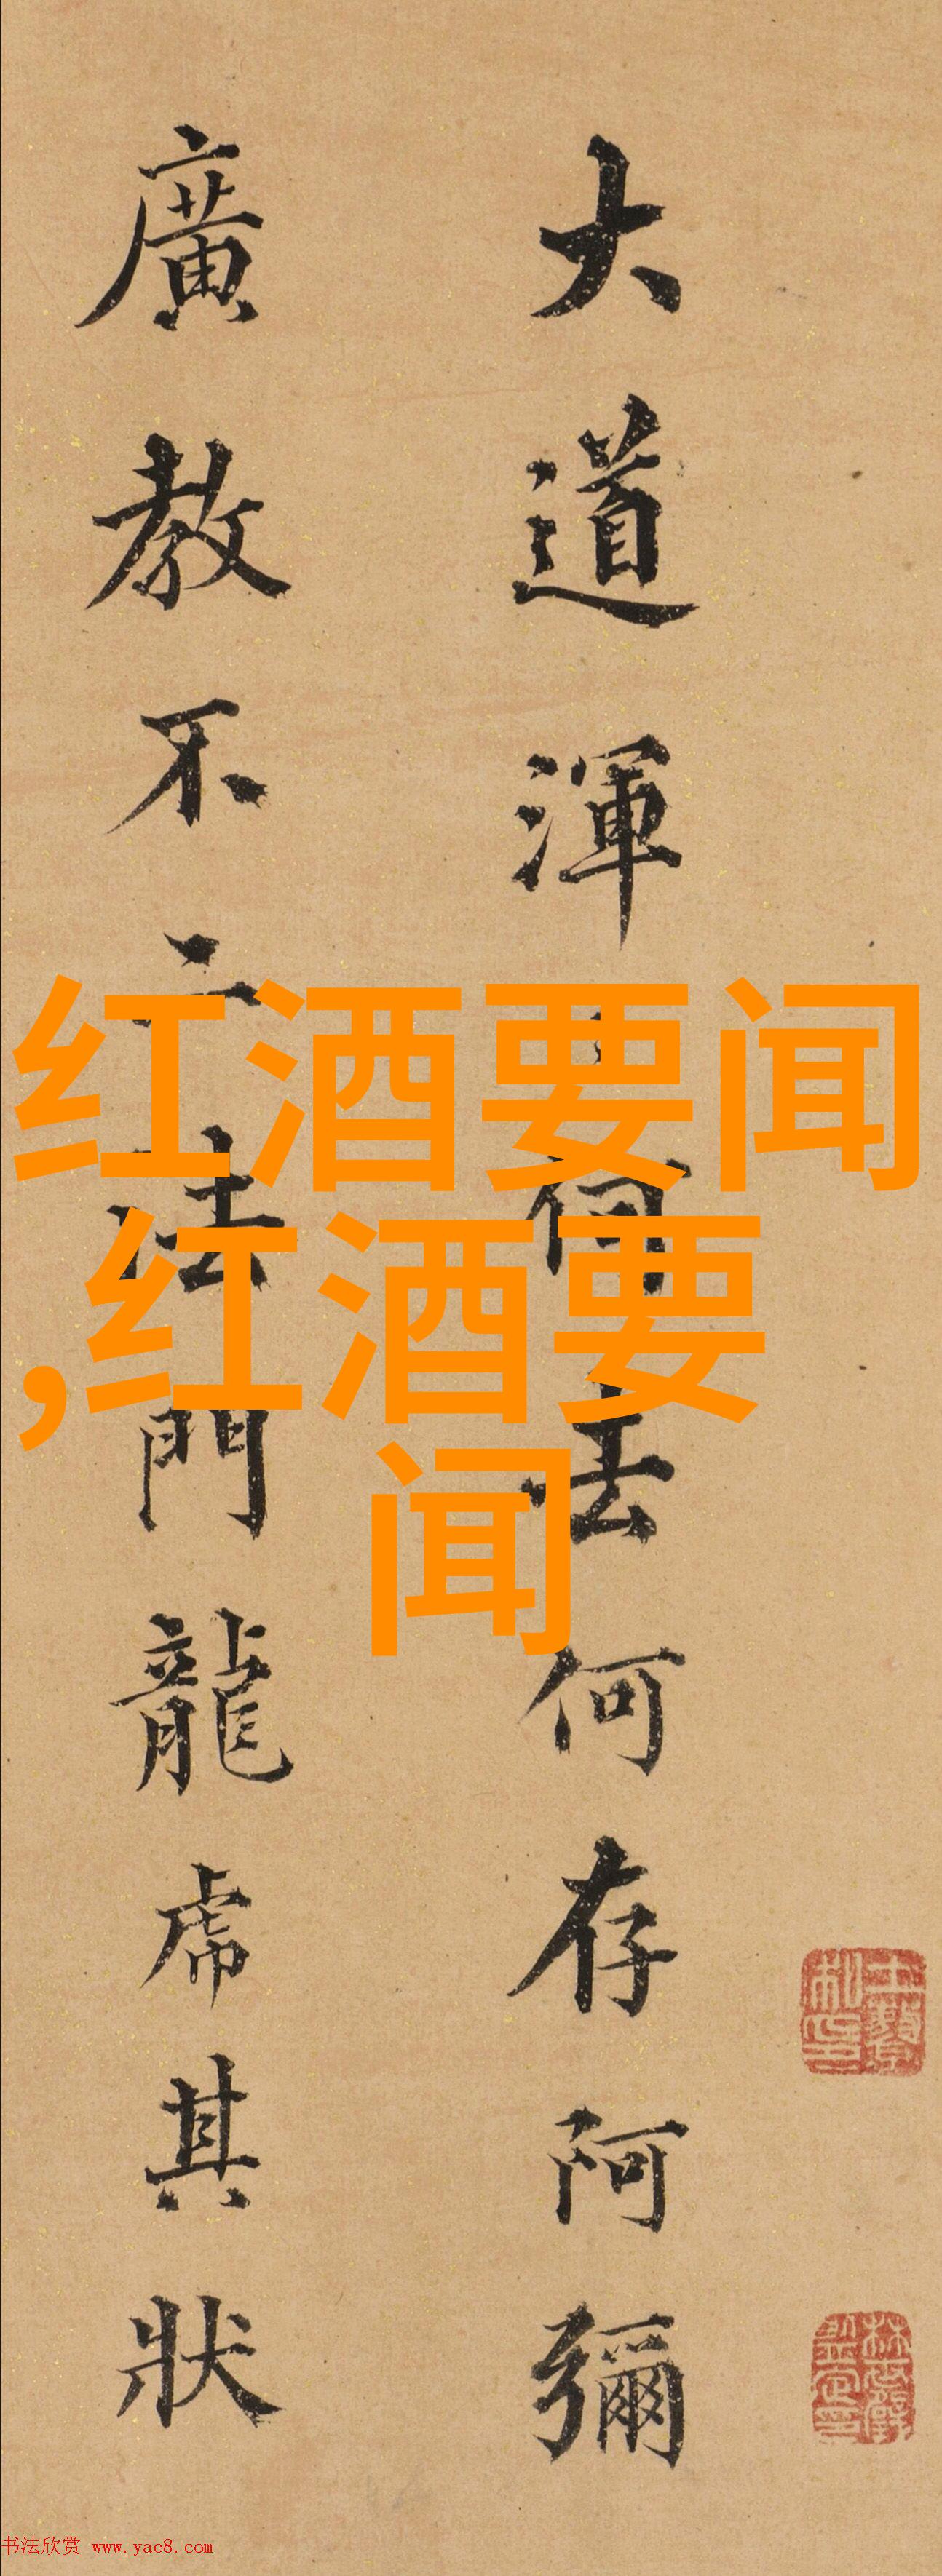 大道渾何去何存阿彌
廣教不二法門龍虎其狀
红酒要闻
,红酒要
闻
书法欣赏 www.yac8.com